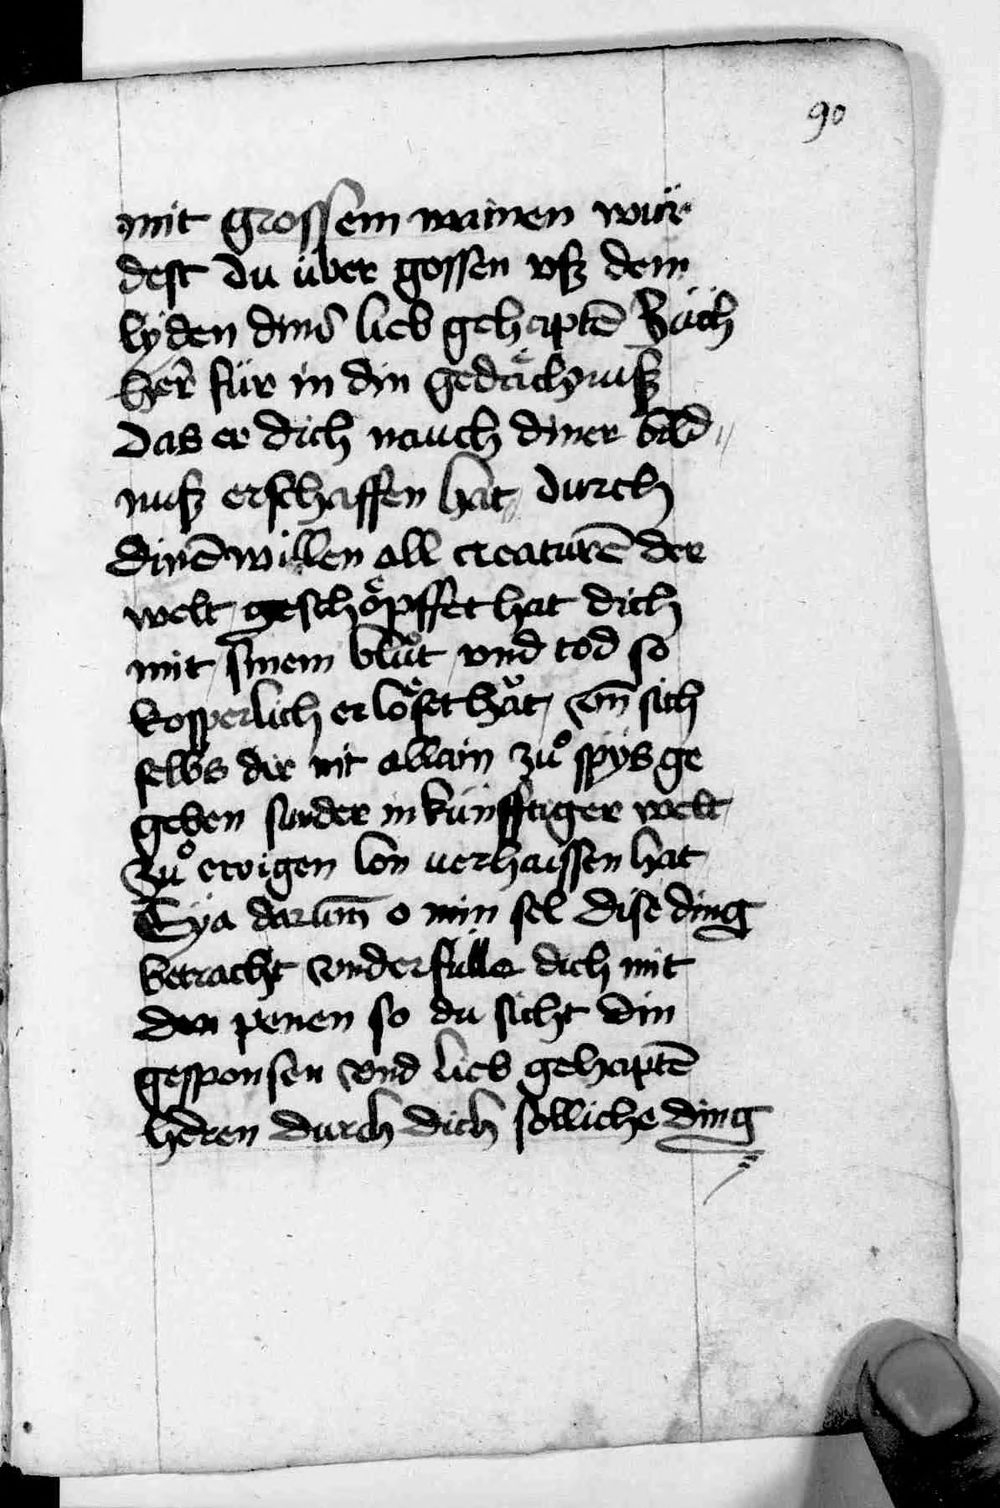 90
mit grossem wainen wür
dest du über gossen vsz dem
lyden dins lieb gehaptē Züch
her für in din gedächnusz
Das er dich nauch diner bild„
nusz erschaffen hat, durch
dinē willen all creaturē der
welt geschöpffet hat dich
mit sinem blůt vnd tod so
kosperlich erlöset hǎt, vm̄ sich
selbs dir nit allain zů spys ge
geben sunder in künfftiger welt
zů ewigen lon uerhaissen hat
Eya darum̄ o min sel dise ding
betracht vnd erfülle dich mit
den penen so du sicht din
gesponsen vnd lieb gehaptē
heren durch dich solliche ding